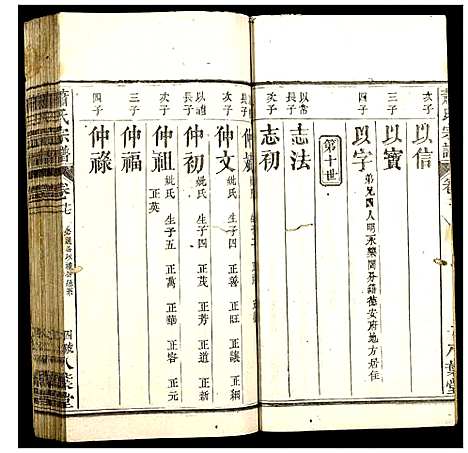 次子
以信
三子
以寶
次子
以字
弟兄四人明永樂間分籍德安府地方居住
第十世
以常
長子
志法
次子
志初
長子
仲
次子
仲文
妣氏 生子四 正善 正旺 正讓 正稱
以誥
長子
仲初
妣氏 生子四 正茂 正芳 正道 正新
次子
仲祖
妣氏 生子五 正萬 正華 正容 正元
正英
三子
仲福
四子
仲祿
蕭氏宗譜
卷十七
四啟
八葉堂